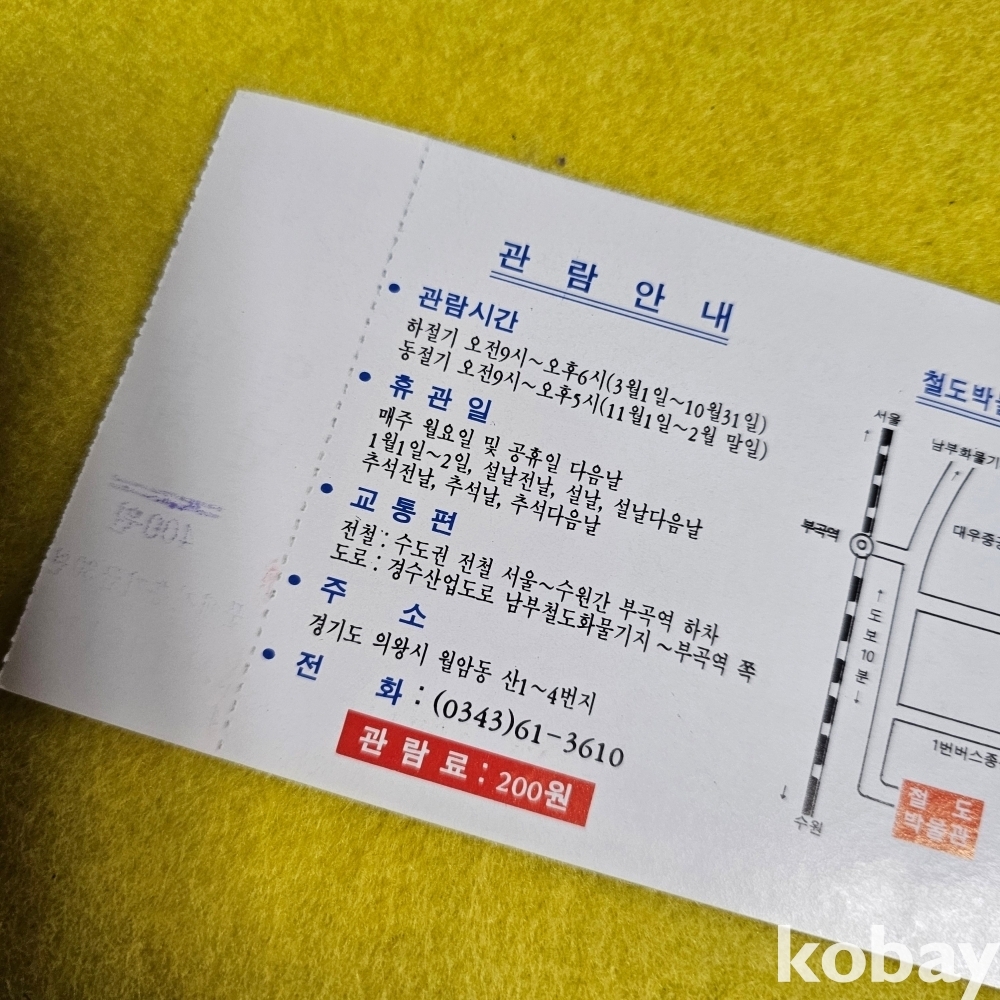 관 람 안 내
• 관람시간
하절기 오전9시~오후6시(3월1일~10월31일)
동절기 오전9시~오후5시(11월1일~2월 말일)
• 휴 관 일
매주 월요일 및 공휴일 다음날
1월1일~2일, 설날전날, 설날, 설날다음날
추석전날, 추석날, 추석다음날
• 교 통 편
전철 : 수도권 전철 서울~수원간 부곡역 하차
도로 : 경수산업도로 남부철도화물기지 ~부곡역 쪽
• 주 소
경기도 의왕시 월암동 산1~4번지
• 전 화 : (0343)61-3610
관 람 료 : 200원
철도박
서울
남부화물기
부곡역
대우중
↑도보10분↓
1번버스종
수원
철 도
박물관
400원
kobay